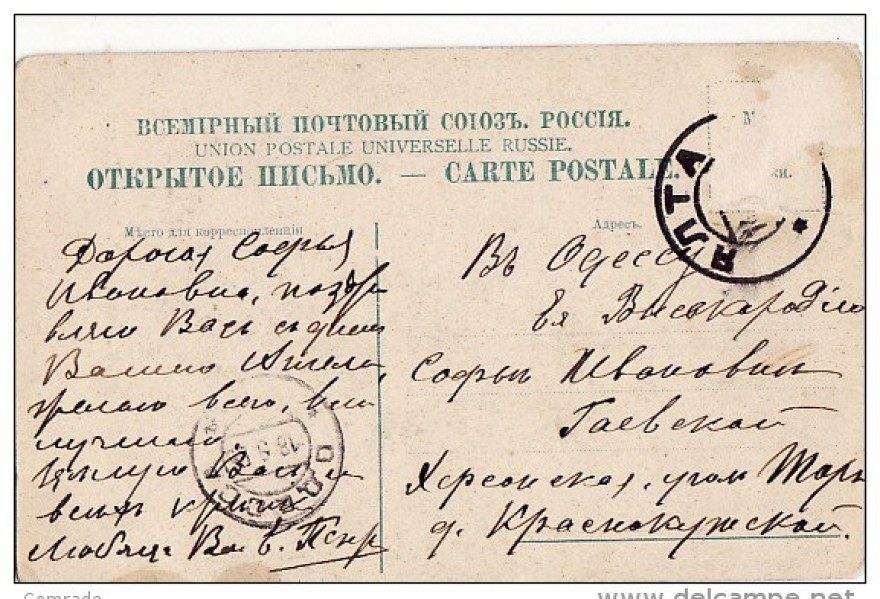 ВСЕМІРНЫЙ ПОЧТОВЫЙ СОЮЗЪ. РОССІЯ.
UNION POSTALE UNIVERSELLE RUSSIE.
ОТКРЫТОЕ ПИСЬМО. — CARTE POSTALE.
Мѣсто для корреспонденціи
Дорогая Софья
Ивановна, поздра
вляю Васъ съ днемъ
Вашего Ангела,
желаю всего, всего
лучшаго.
Цѣлую Васъ и
всѣхъ крѣпко
Любящ. Ва
Адресъ.
Въ Одессу
Ея Высокородію
Софьи Ивановнѣ
Гаевской
Херсонская, угол Торг
д. Краснокутской.
ЯЛТА
ОДЕССА
18 5
Comrade
www.delcampe.net